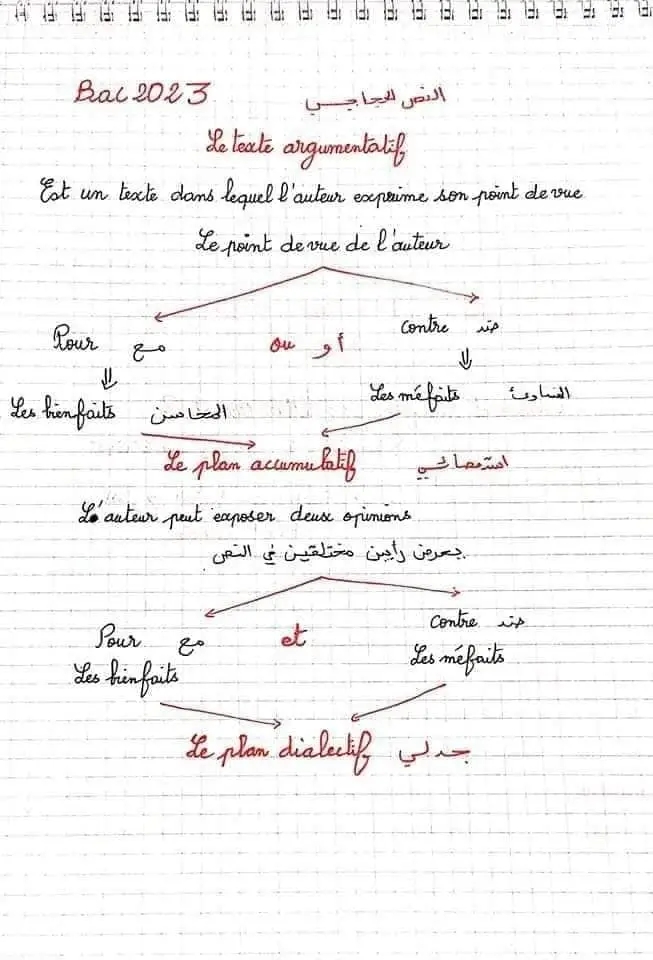 Bac 2023 النص الحجاجي
Le texte argumentatif
Est un texte dans lequel l'auteur exprime son point de vue
Le point de vue de l'auteur
Pour مع ou أو contre ضد
Les bienfaits المحاسن Les méfaits المساوئ
Le plan accumulatif
L'auteur peut exposer deux opinions
يعرض رأيين مختلفين في النص
Pour مع et contre ضد
Les bienfaits Les méfaits
Le plan dialectif جدلي